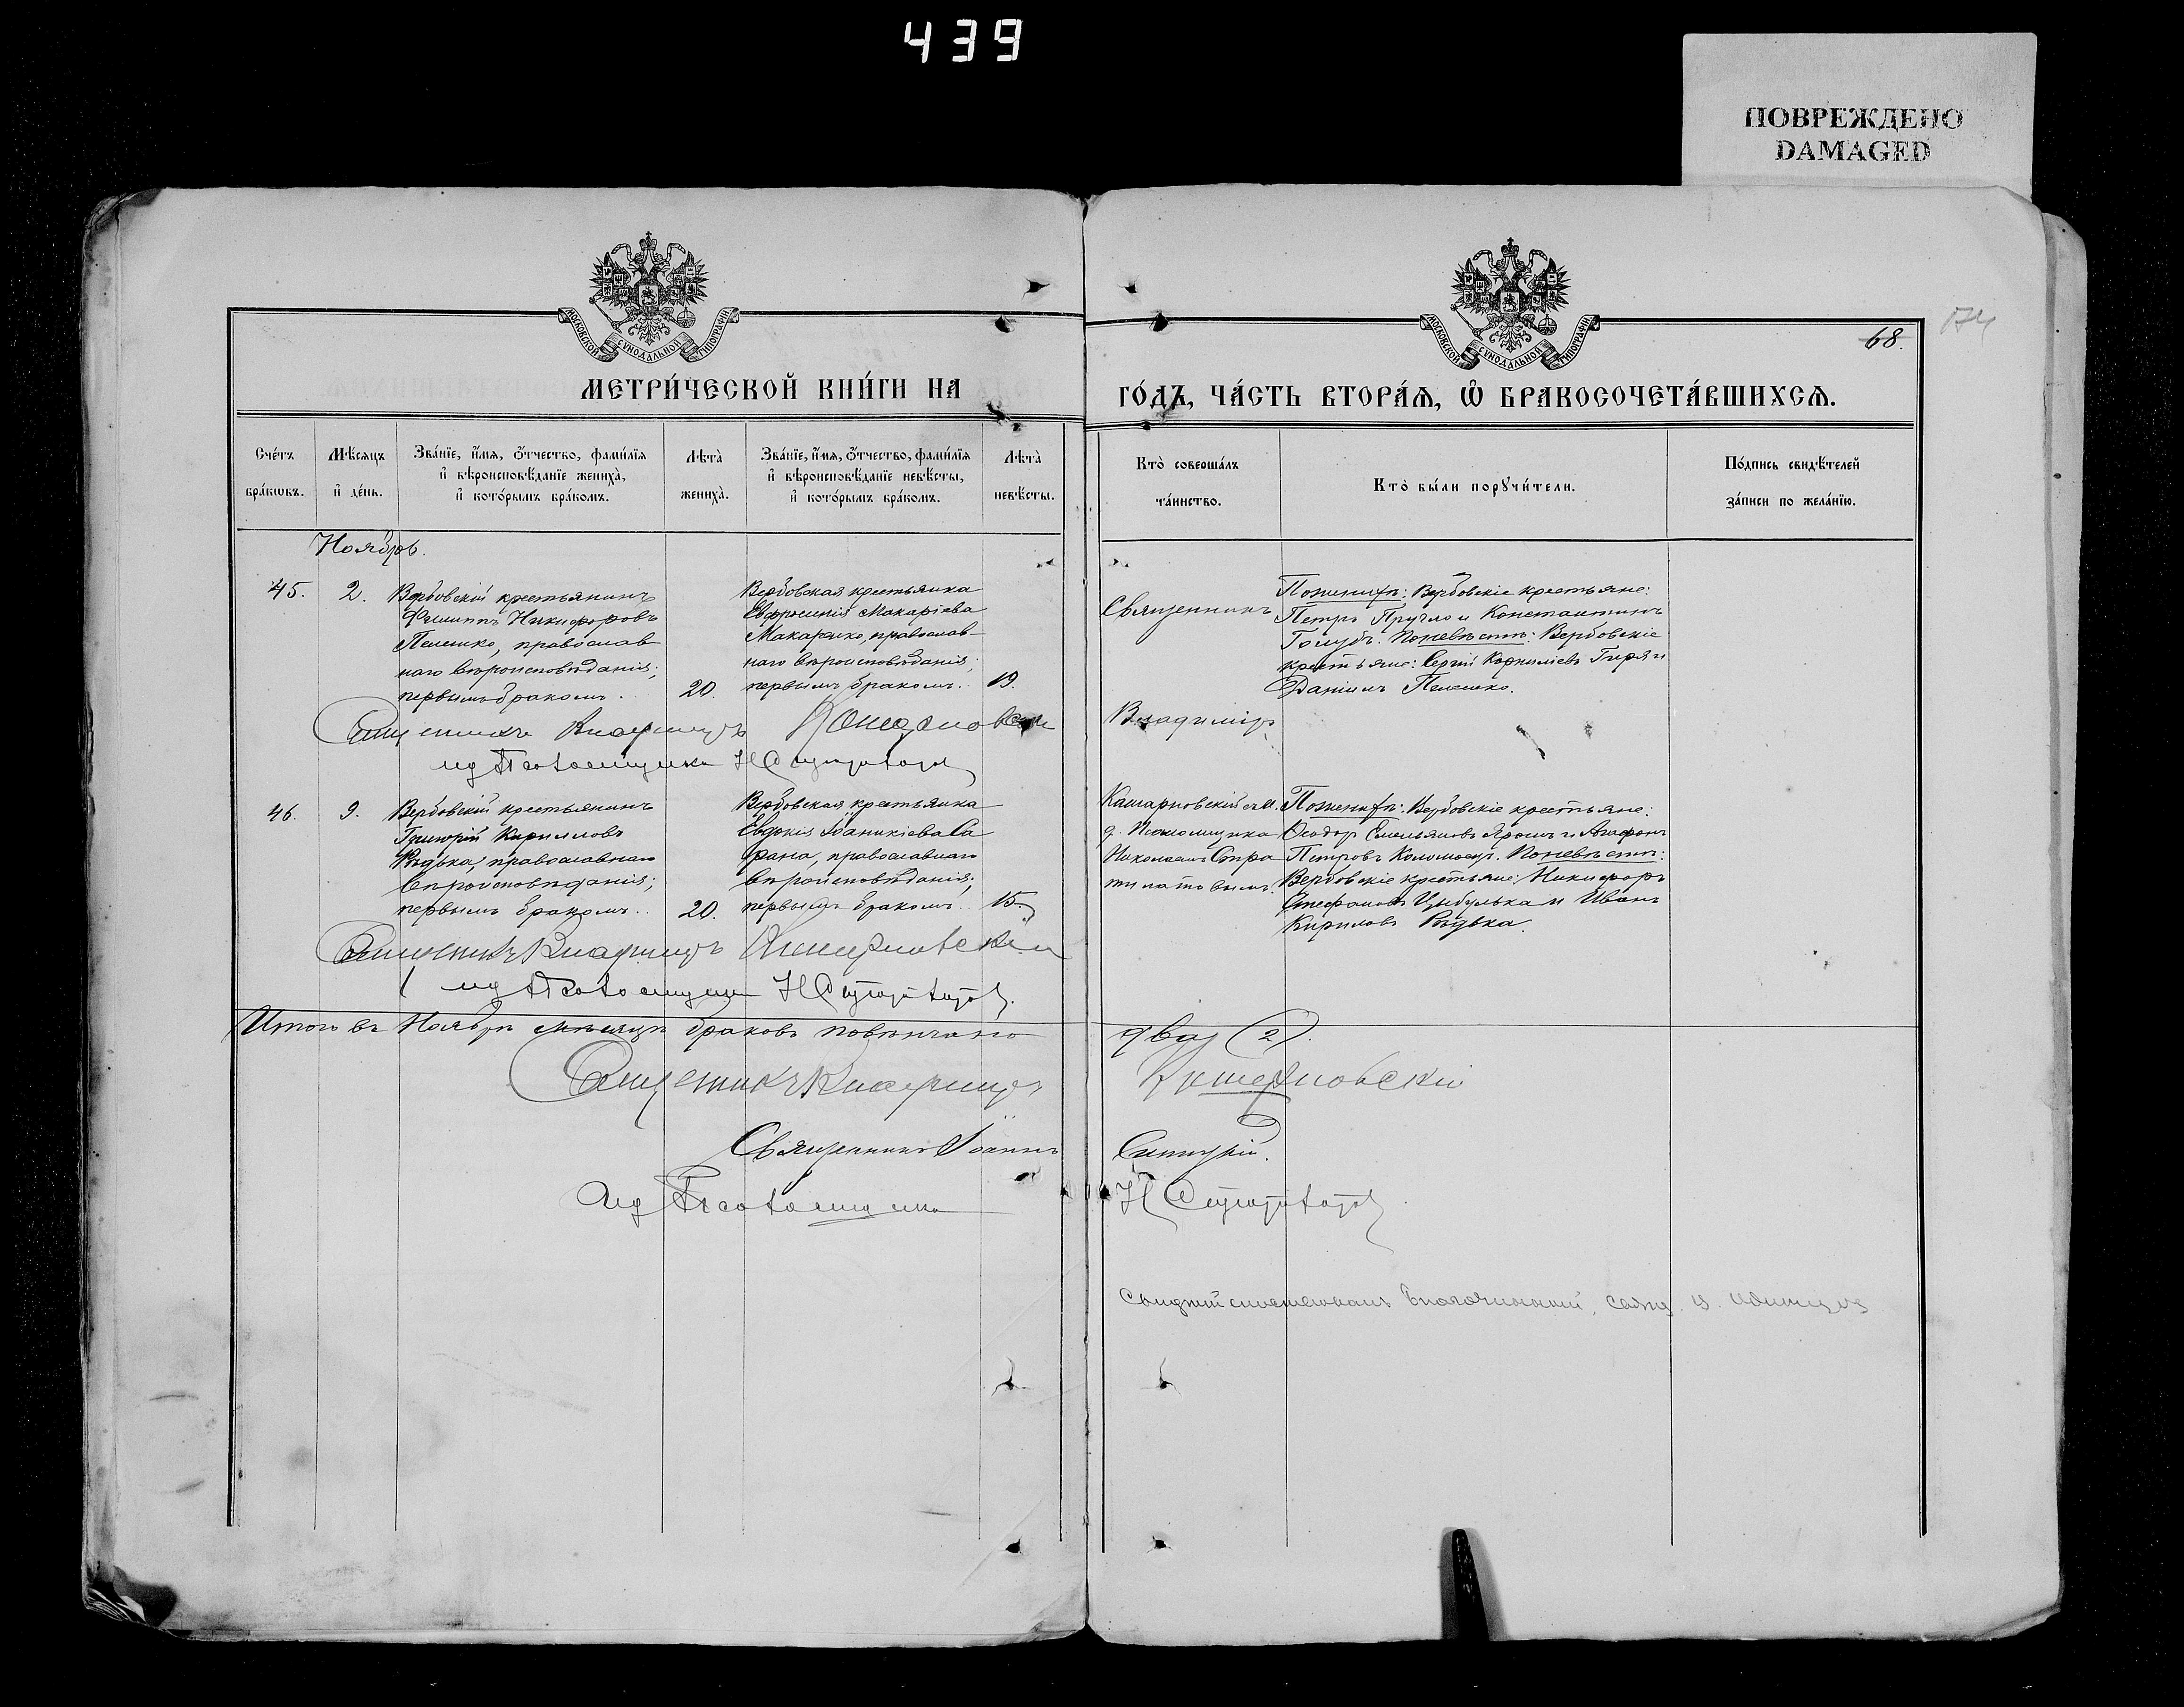 439
ПОВРЕЖДЕНО
DAMAGED
МОСКОВСКОЙ СѴНОДАЛЬНОЙ ТИПОГРАФІИ
МОСКОВСКОЙ СѴНОДАЛЬНОЙ ТИПОГРАФІИ
68.
174
МЕТРИ́ЧЕСКОЙ КНИ́ГИ НА
ГО́ДЪ, ЧА́СТЬ ВТОРА́Ѧ, Ѽ БРАКОСОЧЕТА́ВШИХСѦ.
Сче́тъ
бра́кωвъ.
Мѣ́сяцъ
и҆ де́нь.
Зва́нїе, и҆́мя, ѻ҆́тчество, фами́лїя
и҆ вѣроисповѣ́данїе жениха̀,
и҆ кото́рымъ бра́комъ.
Лѣта̀
жениха̀.
Зва́нїе, и҆́мя, ѻ҆́тчество, фами́лїя
и҆ вѣроисповѣ́данїе невѣ́сты,
и҆ кото́рымъ бра́комъ.
Лѣта̀
невѣ́сты.
Кто̀ соверша́лъ
та́инство.
Кто̀ бы́ли порꙋчи́тели.
По́дпись свидѣ́телей
за́писи по жела́нїю.
Ноябрь.
45.
2.
Вербовскій крестьянинъ
Филиппъ Никифоровъ
Пелешко, православ
наго вѣроисповѣданія;
первымъ бракомъ.
20.
Вербовская крестьянка
Евфросинія Макаріева
Макаренко, православ-
наго вѣроисповѣданія;
первымъ бракомъ.
19.
Священникъ
Владиміръ
Кашарновскій съ и.
д. Псаломщика
Николаемъ Стра
тилатовымъ.
По женихѣ: Вербовскіе крестьяне:
Петръ Пругло и Константинъ
Голубъ. По невѣстѣ: Вербовскіе
крестьяне: Сергій Корниліевъ Гиря и
Даніилъ Пелешко.
Священникъ Владиміръ Кашарновскій
ид Псаломщика Н Стратилатовъ
46.
9.
Вербовскій крестьянинъ
Григорій Кирилловъ
Рѣдька, православнаго
вѣроисповѣданія;
первымъ бракомъ.
20.
Вербовская крестьянка
Евдокія Іоаникіева Са
фана, православнаго
вѣроисповѣданія;
первымъ бракомъ.
15.
По женихѣ: Вербовскіе крестьяне:
Ѳеодоръ Емельяновъ Яромъ и Агафонъ
Петровъ Коломоецъ. По невѣстѣ:
Вербовскіе крестьяне: Никифоръ
Стефановъ Цыбулька и Иванъ
Кириловъ Рѣдька.
Священникъ Владиміръ Кашарновскій
ид Псаломщика Н Стратилатовъ.
Итого въ Ноябрѣ мѣсяцѣ браковъ повѣнчано два (2).
Священникъ Владиміръ Кашарновскій
Священникъ Іоаннъ Синицкій.
Ид Псаломщика Н Стратилатовъ
благочинный, свящ.